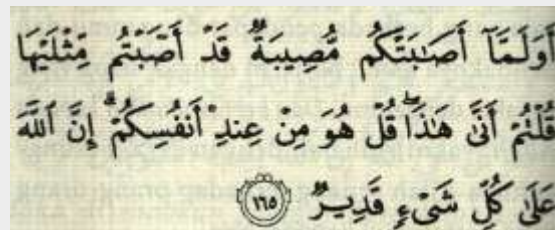 أَوَلَمَّآ أَصَـٰبَتْكُم مُّصِيبَةٌ قَدْ أَصَبْتُم مِّثْلَيْهَا
قُلْتُمْ أَنَّىٰ هَـٰذَا ۖ قُلْ هُوَ مِنْ عِندِ أَنفُسِكُمْ ۗ إِنَّ ٱللَّهَ
عَلَىٰ كُلِّ شَىْءٍ قَدِيرٌ ١٦٥